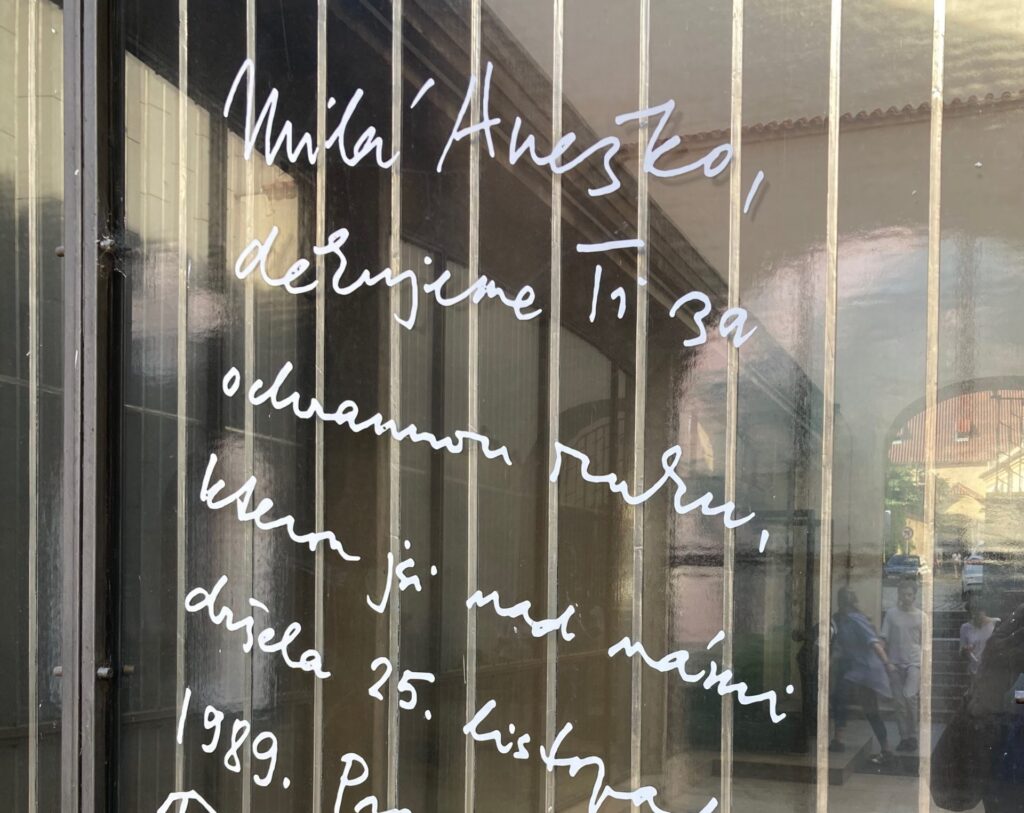 Milá Anežko,
děkujeme Ti za
ochrannou ruku,
kterou jsi nad námi
držela 25. listopa
1989.